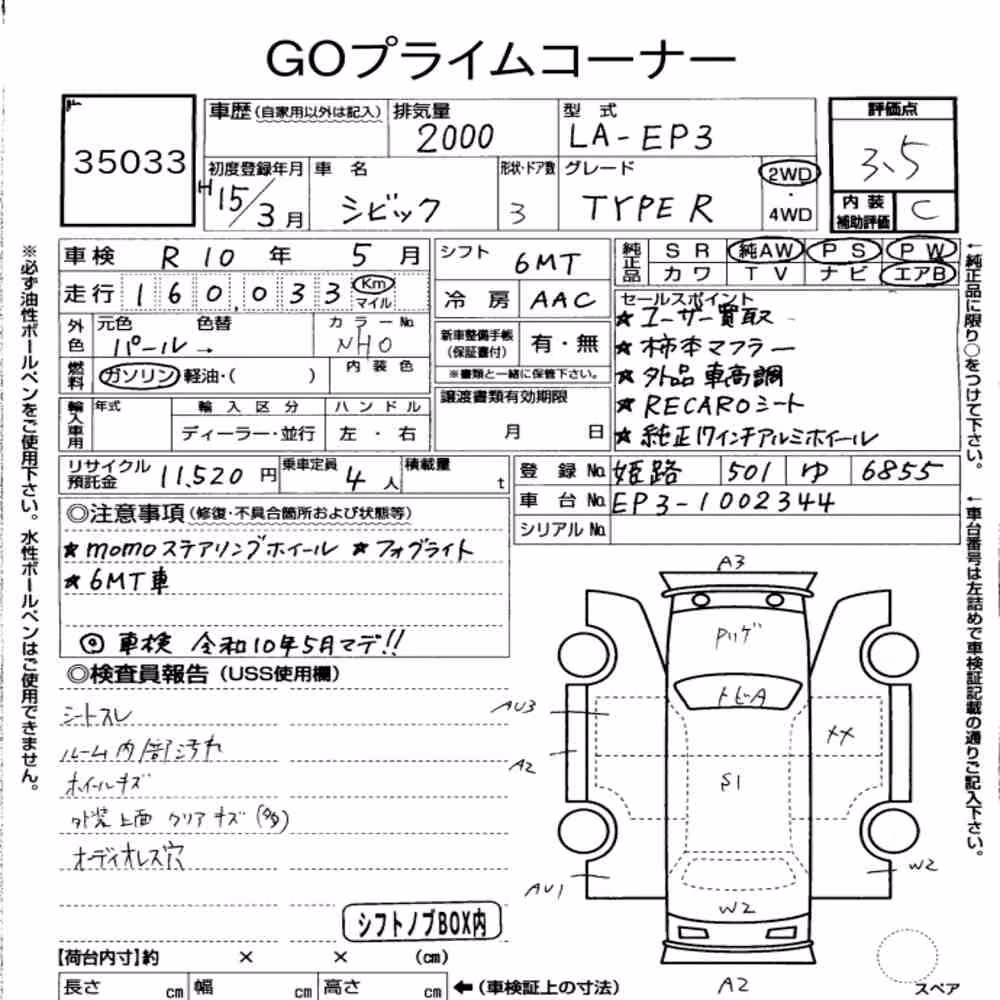 GOプライムコーナー
35033
車歴(自家用以外は記入)
排気量
2000
型式
LA-EP3
評価点
3.5
初度登録年月
H15/3月
車名
シビック
形状・ドア数
3
グレード
TYPE R
2WD
・
4WD
内装
補助評価
C
車検 R10年 5月
走行 160,033 Km
マイル
シフト
6MT
冷房 AAC
純正品
SR 純AW PS PW
カワ TV ナビ エアB
外色
元色 色替
パール→
カラーNo.
NH0
燃料
ガソリン・軽油・( )
内装色
新車整備手帳
(保証書付)
有・無
※書類と一緒に保管下さい。
セールスポイント
★ユーザー買取
★柿本マフラー
★外品車高調
★RECAROシート
★純正17インチアルミホイール
輸入車用
年式
輸入区分
ディーラー・並行
ハンドル
左・右
譲渡書類有効期限
月 日
リサイクル
預託金
11,520円
乗車定員
4人
積載量
t
登録No. 姫路 501 ゆ 6855
車台No. EP3-1002344
シリアルNo.
◎注意事項(修復・不具合箇所および状態等)
★momoステアリングホイール ★フォグライト
★6MT車
◎車検 令和10年5月マデ!!
◎検査員報告(USS使用欄)
シートスレ
ルーム内部汚れ
ホイールキズ
外装上面クリアキズ(多)
オーディオレス穴
シフトノブBOX内
【荷台内寸】約 × × (cm)
長さ cm 幅 cm 高さ cm
←(車検証上の寸法)
A3
トビA
AU3
XX
A2
S1
AU1
W2
W2
A2
スペア
※必ず油性ボールペンをご使用下さい。水性ボールペンはご使用できません。
←純正品に限り○をつけて下さい。
←車台番号は左詰めで車検証記載の通りご記入下さい。